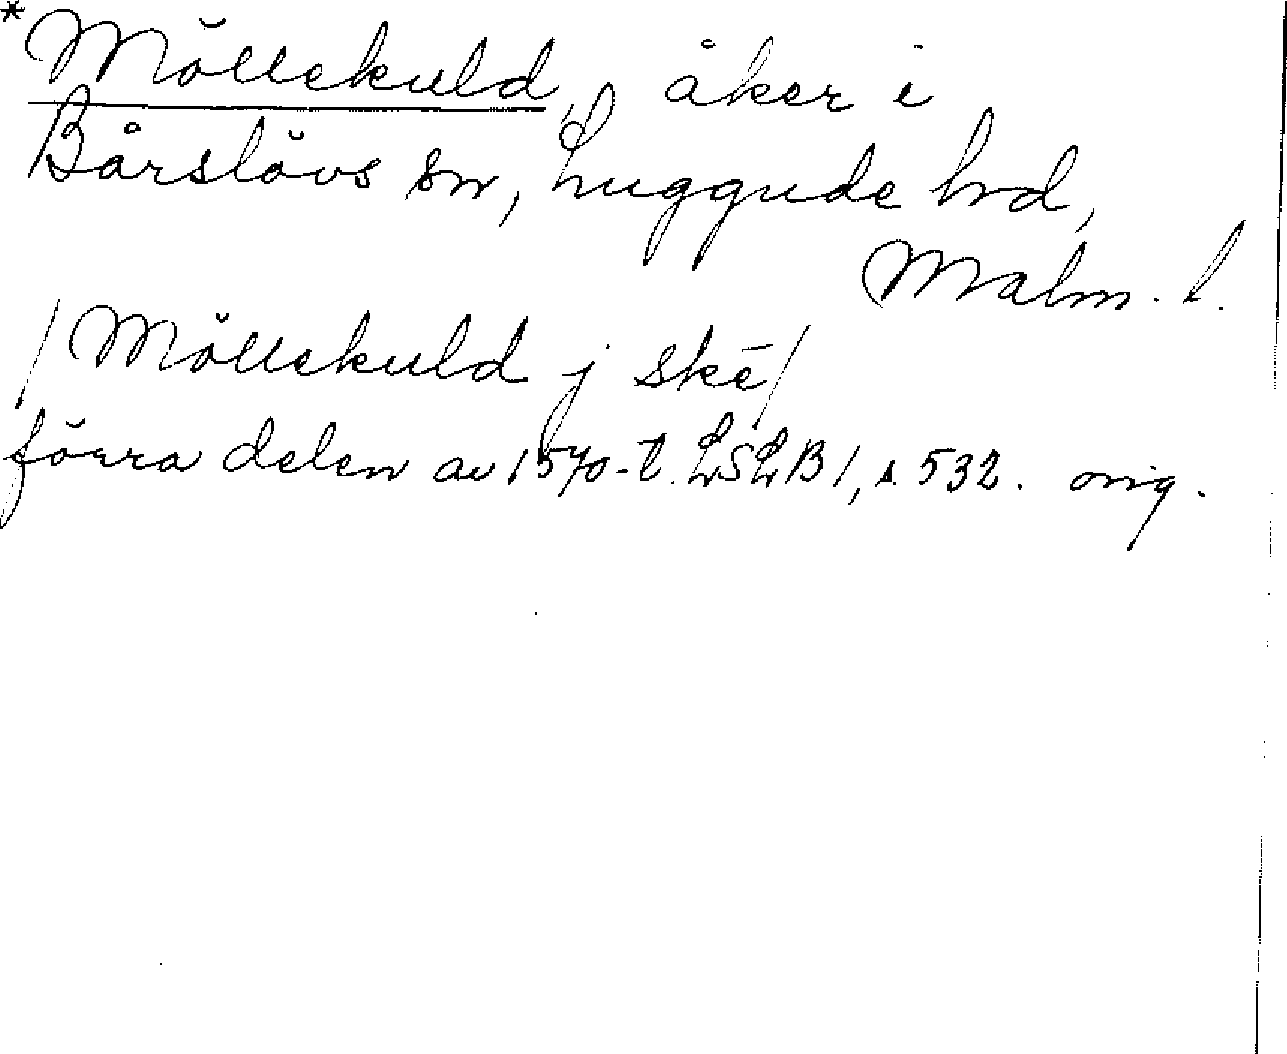 *Möllekuld, åker i
Bårslövs sn, Luggude hrd,
Malm. l.
/Möllekuld j skē/
förra delen av 1570-t. LSLB 1, s. 532. orig.